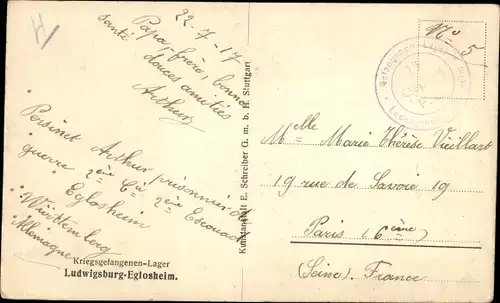 22-7-17
Papa, frère, bonne
santé
douces amitiés
Arthur
Persinet Arthur prisonnier de
guerre 2ème Cie 2ème Escouade
Eglosheim
Württemberg
Allemagne
Kriegsgefangenen-Lager
Ludwigsburg-Eglosheim.
Kunstanstalt E. Schreiber G. m. b. H. Stuttgart
No 5
Gefangenen-Lager
Melle Marie Thérèse Vieillart
19 rue de Savoie 19
Paris (6ème)
(Seine). France